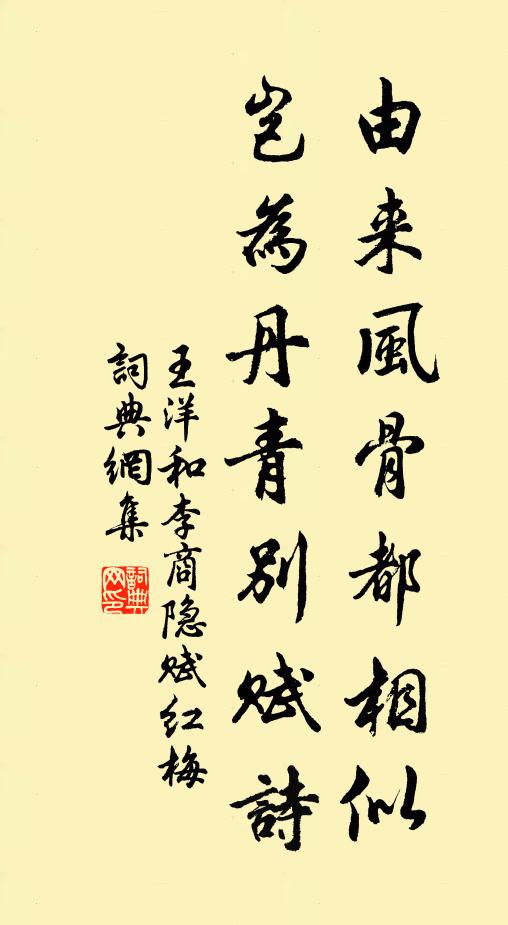 由来風骨都相似
豈為丹青別赋詩
王洋和李商隐赋红梅
詞典網集
詞典
网印